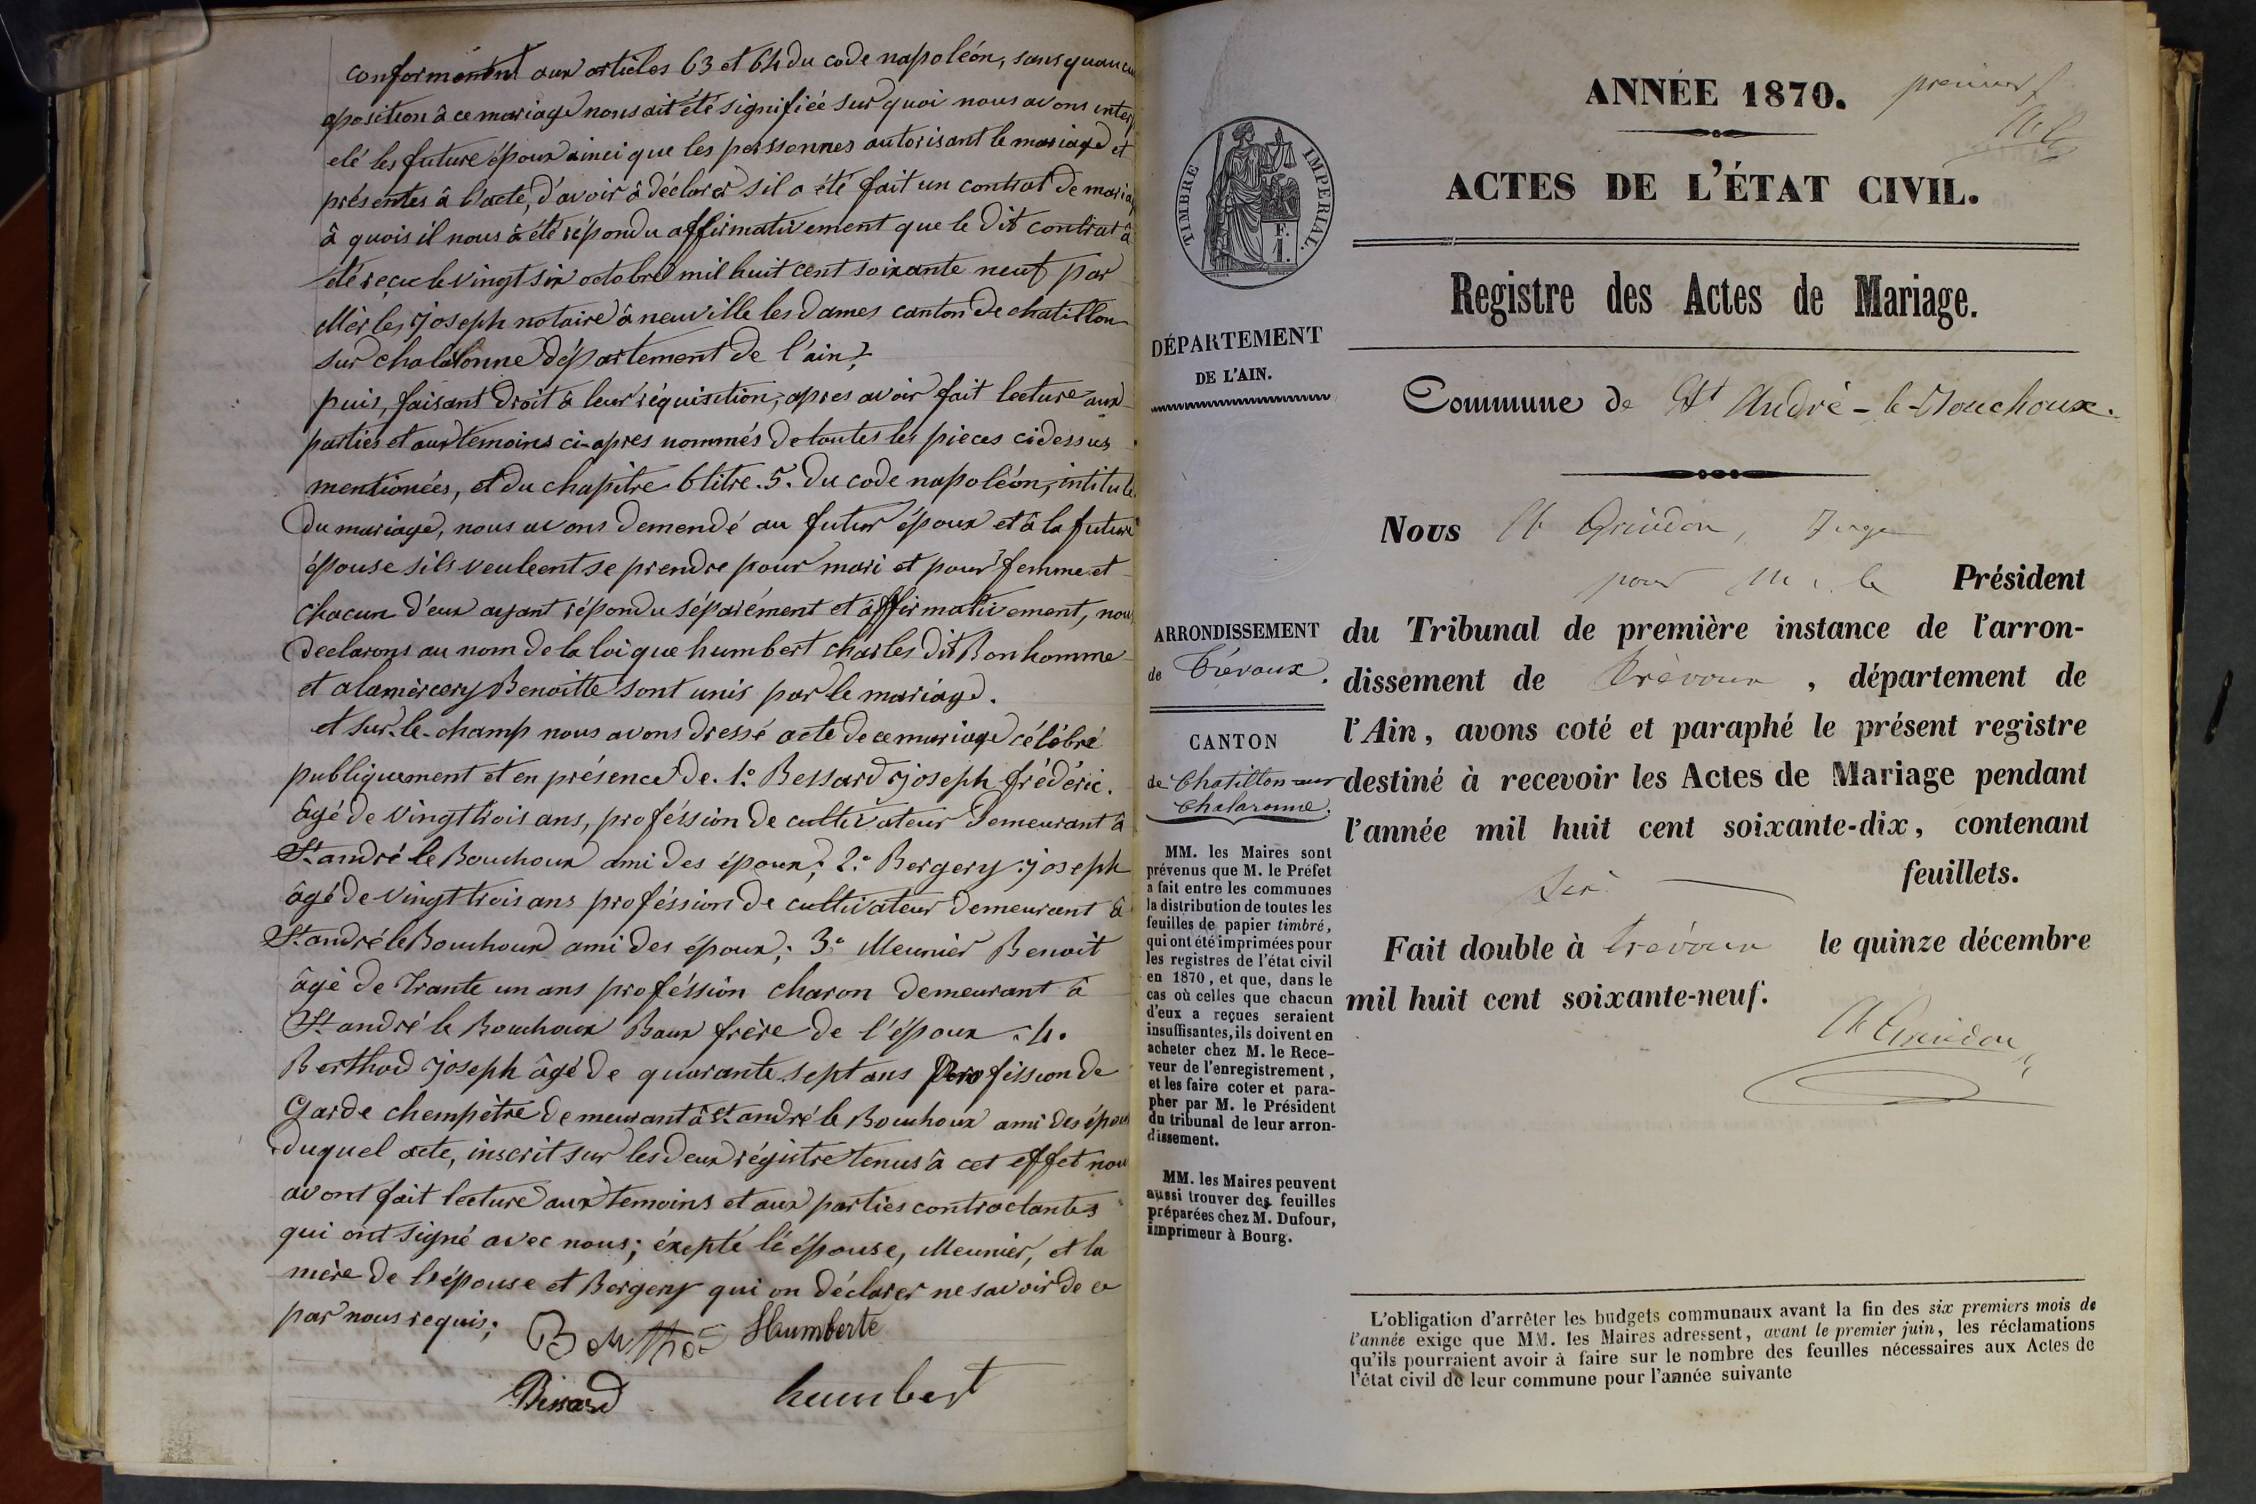 conformément aux articles 63 et 64 du code napoléon, sans quaucu
oposition à ce mariage nous ait été signifiée sur quoi nous avons interp
elé les future époux ainci que les perssonnes autorisant le mariage et
présentes à l'acte, d'avoir à déclarer s'il a été fait un contrat de maria
à quois il nous à été répondu affirmativement que le dit contrat à
été reçue le vingt six octobre mil huit cent soixante neuf par
joseph notaire à neuville les dames canton de chatillon
sur chalaronne département de l'ain;
puis, faisant droit à leur réquisition, apres avoir fait lecture aux
parties et aux temoins ci-apres nommés de toutes les pieces ci dessus
mentionées, et du chapitre 6 titre .5. du code napoléon, intitulé
du mariage, nous avons demendé au futur époux et à la future
épouse sils veuleent se prendre pour mari et pour femme et
chacun d'eux ayant répondu séparément et affirmativement, nous
declarons au nom de la loi que humbert charles dit Bonhomme
et alamercery Benoitte sont unis par le mariage.
et sur-le-champ nous avons dressé acte de ce mariage célébré
publiquement et en présence de. 1.° Bessard joseph frédéric.
âgé de vingt trois ans, proféssion de cultivateur demeurant à
St andré le Bouchoux ami des époux; 2.° Bergery joseph
âgé de vingt trois ans proféssion de cultivateur demeurant à
St andré le Bouchoux ami des époux; 3.° Meunier Benoit
âgé de trante un ans proféssion charon demeurant à
St andré le Bouchoux Baux frère de l'époux . 4.
Berthod joseph âgé de quarante sept ans profission de
Garde chempêtre demeurant à St andré le Bouchoux ami des époux
duquel acte, inscrit sur les deux régistre tenus à cet effet nou
avont fait lecture aux temoins et aux parties contractantes
qui ont signé avec nous; éxepté l'épouse, Meunier, et la
mère de l'épouse et Bergery qui on déclarer ne savoir de ce
par nous requis;
Humberte
Bessard humbert
ANNÉE 1870. premier f
ACTES DE L'ÉTAT CIVIL.
Registre des Actes de Mariage.
TIMBRE IMPERIAL.
F.
1.
DÉPARTEMENT
DE L'AIN.
Commune de St André-le-Bouchoux.
ARRONDISSEMENT
de Trévoux.
CANTON
de Chatillon-sur
Chalaronne.
MM. les Maires sont
prévenus que M. le Préfet
a fait entre les communes
la distribution de toutes les
feuilles de papier timbré,
qui ont été imprimées pour
les registres de l'état civil
en 1870, et que, dans le
cas où celles que chacun
d'eux a reçues seraient
insuffisantes, ils doivent en
acheter chez M. le Rece-
veur de l'enregistrement,
et les faire coter et para-
pher par M. le Président
du tribunal de leur arron-
dissement.
MM. les Maires peuvent
aussi trouver des feuilles
préparées chez M. Dufour,
imprimeur à Bourg.
Nous Juge
pour M. le Président
du Tribunal de première instance de l'arron-
dissement de Trévoux, département de
l'Ain, avons coté et paraphé le présent registre
destiné à recevoir les Actes de Mariage pendant
l'année mil huit cent soixante-dix, contenant
feuillets.
Fait double à Trévoux le quinze décembre
mil huit cent soixante-neuf.
L'obligation d'arrêter les budgets communaux avant la fin des six premiers mois de
l'année exige que MM. les Maires adressent, avant le premier juin, les réclamations
qu'ils pourraient avoir à faire sur le nombre des feuilles nécessaires aux Actes de
l'état civil de leur commune pour l'année suivante